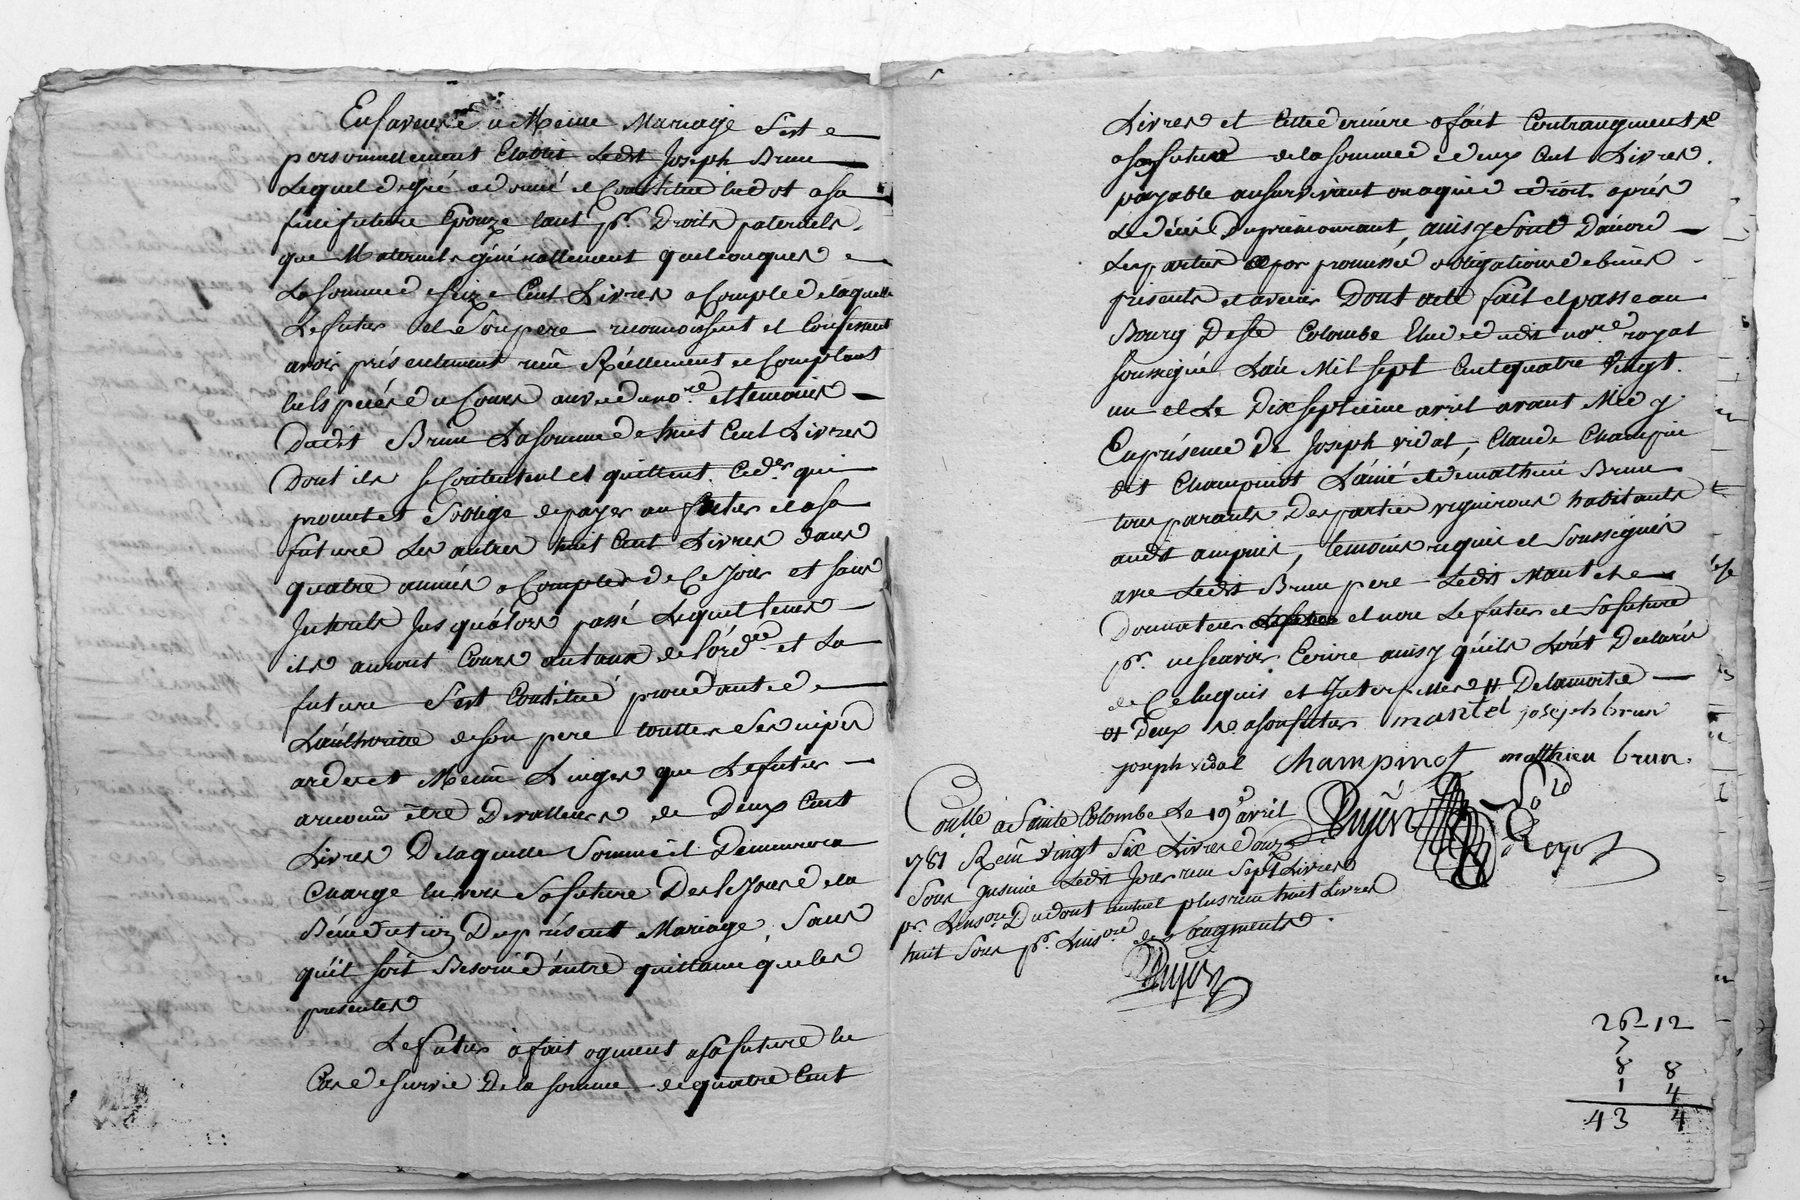 En faveur de ce Meme Mariage S'est
personnellement Etablit Ledit Joseph Brun
Lequel de gré a donné et Constitué en dot a sa
fille future Epouze tant pr. Droits paternels
que Maternels généralement quelconques
La somme de seize Cent Livres a Compte de laquelle
Le futur et Son pere reconnoissent et Confessent
avoir présentement reçu Réellement et Comptant
en Espéces de Cours au vu de no.re et temoins
Dudit Brun La somme de huit Cent Livres
Dont ils se Contentent et quittent. qui
promet et S'oblige de payer au futur et a sa
future Les autres huit Cent Livres dans
quatre années a Compter de Ce Jour et sans
Interets Jusqu'alors passé Lequel tems
ils auront Cours au taux de l'ord.ce et La
future S'est Constitué proced.ante de
L'authorité de son pere touttes Ses nipes
ardes et Meme Linges que Le futur
a reconnu être De valleurs de Deux Cent
Livres De laquelle Somme il Demeurera
Charge envers Sa future Des le Jour de la
Bénédiction Du présent Mariage, Sans
qu'il soit Besoin d'autre quittance que les
presentes
Le futur a fait ogment a sa future en
Cas de survie De la somme de quatre Cent
Livres et Cette derniere a fait Contraugment
a son futur de la somme de deux Cent Livres.
payable au survivant ou a qui de droit après
Le décès Du prémourant, ainsy Sont D'accord
Les parties par promisse obligations de biens
présents et avenir Dont acte fait et passé au
Bourg De Ste Colombe Etude dudit no.re royal
soussigné L'an Mil sept Cent quatre Vingt.
un et Le Dix septieme avril avant Midy
En présence De Joseph vidal, Claude Champin
dit Champinot L'ainé et de mathieu Brun
tous parants Des parties vignerons habitants
audit ampuis, temoins requis et Soussignés
avec Ledit Brun pere Ledit Mantel
Donnateur et non Le futur et Sa future
pr. ne scavoir Ecrire ainsy qu'ils L'ont Declaré
de Ce enquis et Interpellés # De la moitié
# Deux a son futur mantel joseph brun
joseph vidal Champinot matthieu brun.
Con.lle a Sainte Colombe Le 19 avril
1781 Reçu Vingt Six Livres Douze
Sous Ledit Jour reçu Sept Livres
pr. Du dont mutuel plus reçu huit Livres
huit Sous pr. de l'augments.
26 12
7
8 8
1 4
43 4